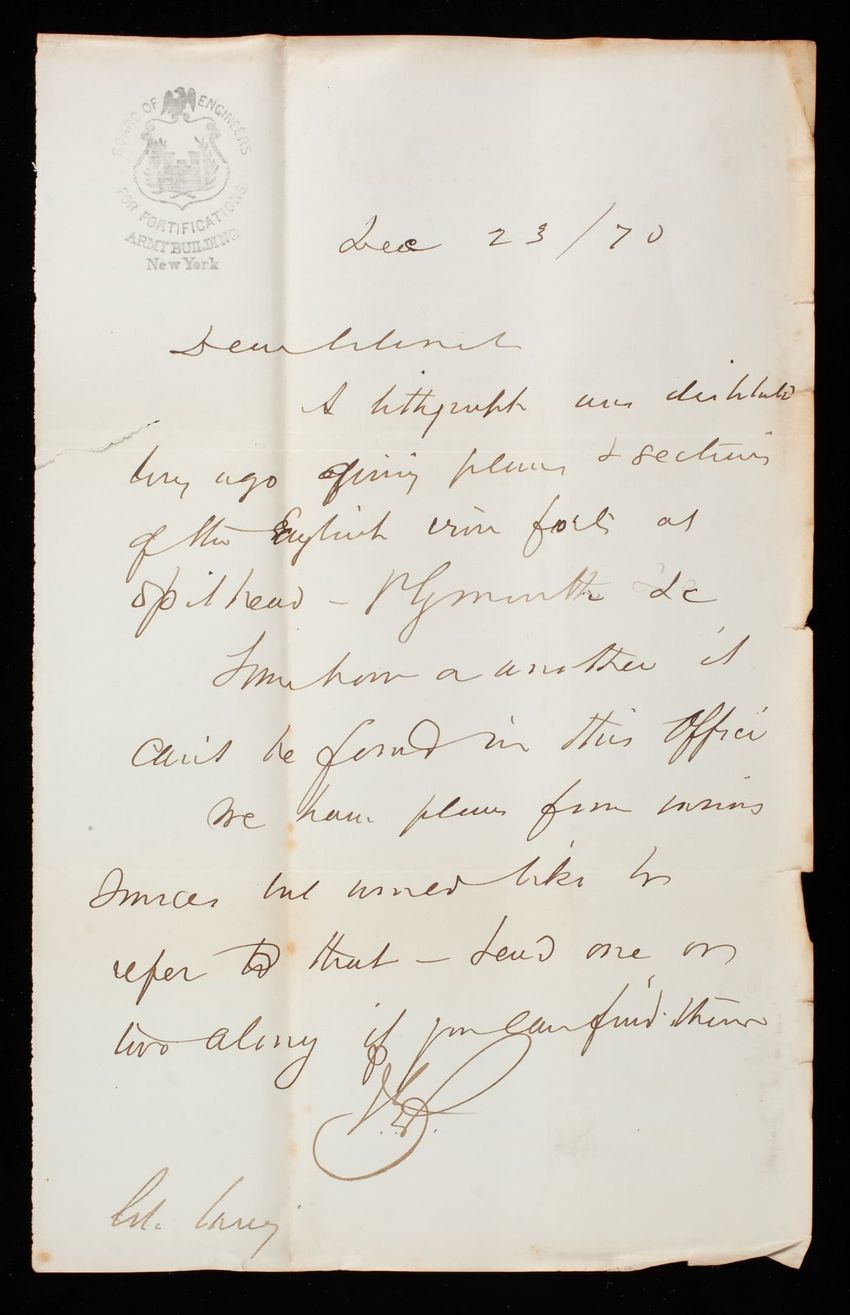 BOARD OF ENGINEERS
FOR FORTIFICATIONS
ARMY BUILDING
New York
Dec 23/70
Dear Colonel
A lithgraph was distributed
long ago giving plans & sections
of the English iron forts at
Spithead – Plymouth &c
Some how or another it
can't be found in this Office
We have plans from various
sources but would like to
refer to that – Send one or
two along if you can find them
Col. Casey